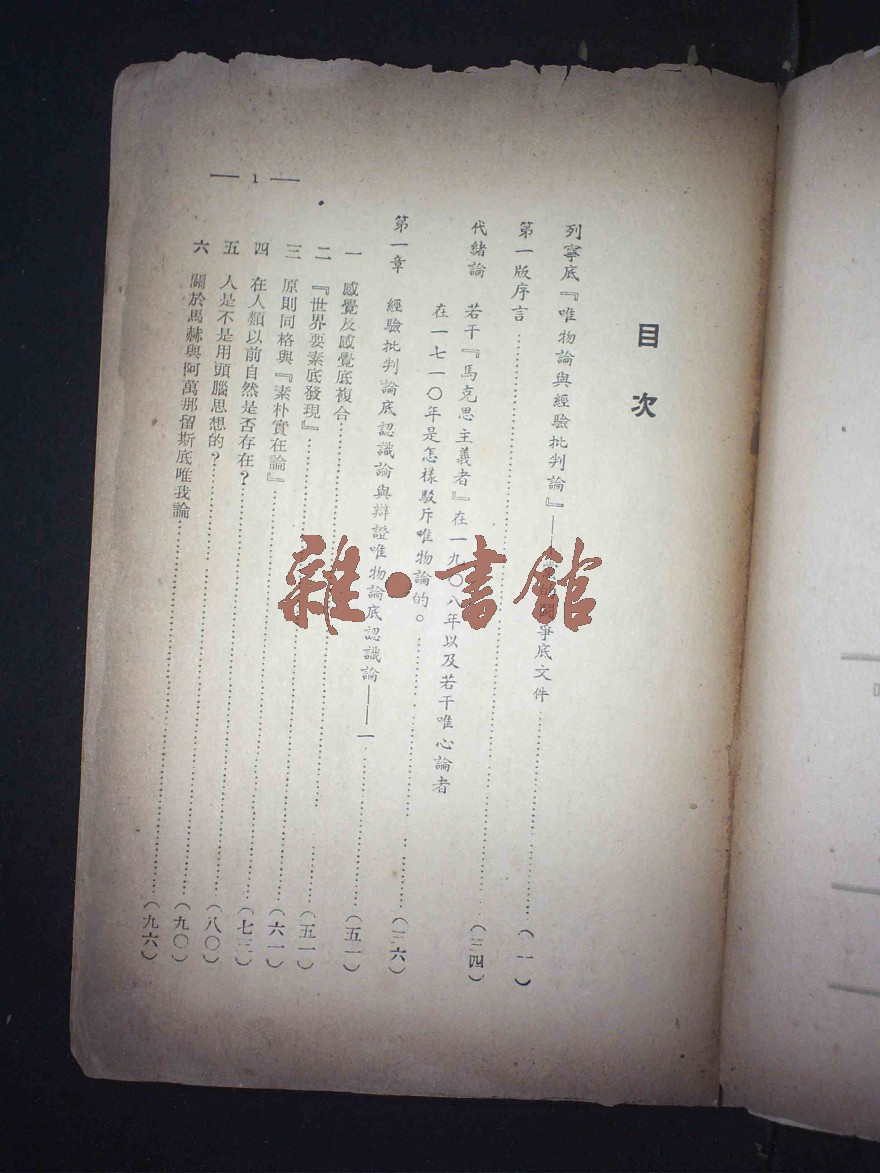 目次
列寧底『唯物論與經驗批判論』——爭底文件………(一)
第一版序言………(三四)
代緒論 若干『馬克思主義者』在一九〇八年以及若干唯心論者
在一七一〇年是怎樣駁斥唯物論的。………(三六)
第一章 經驗批判論底認識論與辯證唯物論底認識論——一………(五一)
一 感覺及感覺底複合………(五一)
二 『世界要素底發現』………(六一)
三 原則同格與『素朴實在論』………(七三)
四 在人類以前自然是否存在？………(八〇)
五 人是不是用頭腦思想的？………(九〇)
六 關於馬赫與阿萬那留斯底唯我論………(九六)
— 1 —
雜·書館